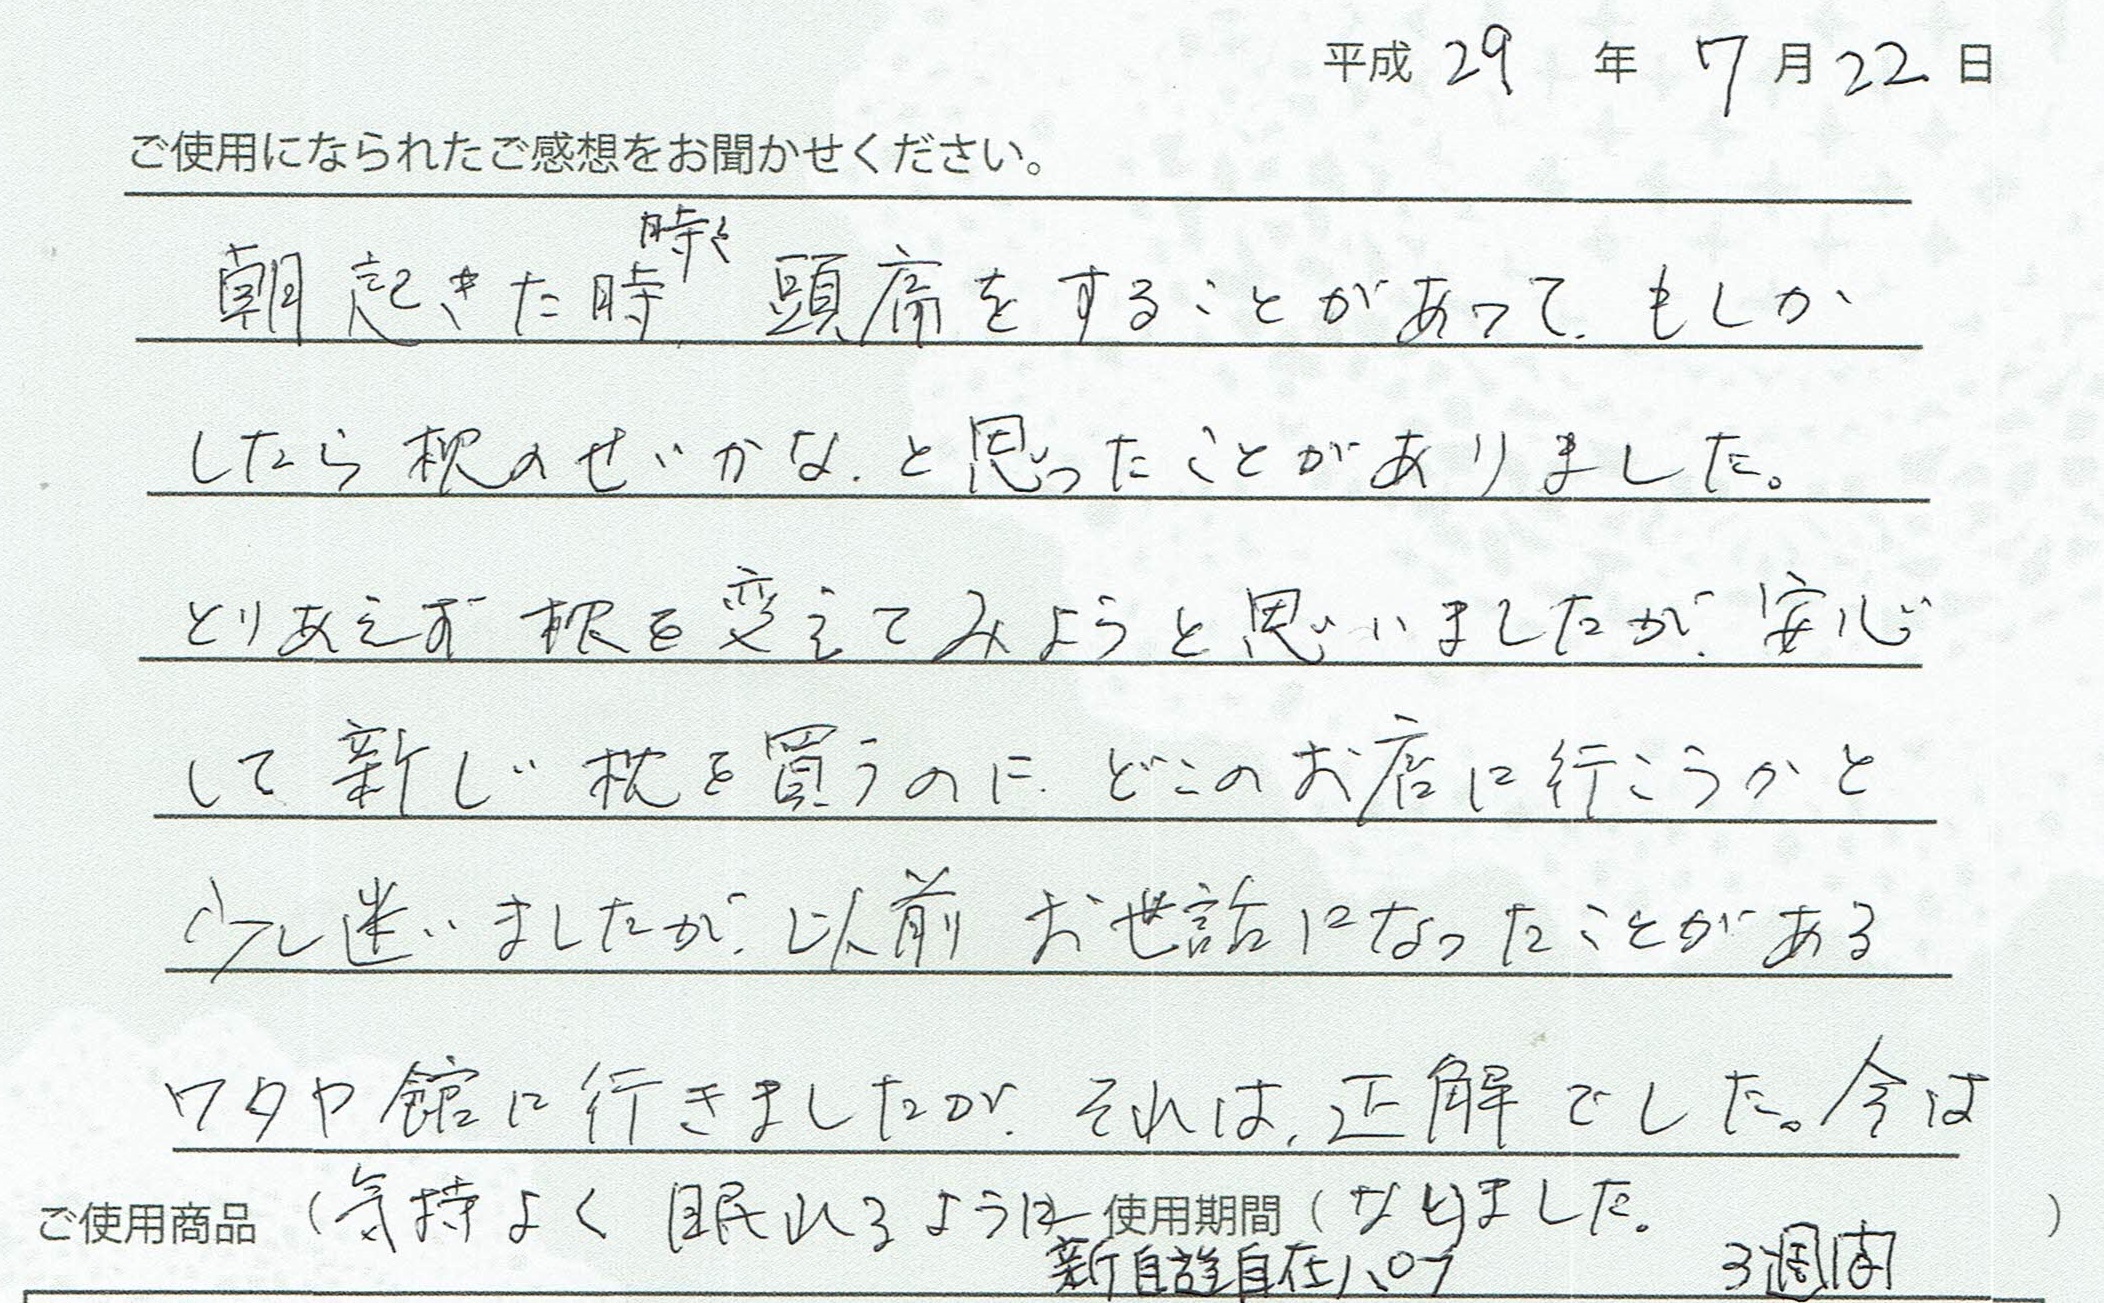 平成 29 年 7 月 22 日
ご使用になられたご感想をお聞かせください。
時々
朝起きた時 頭痛をすることがあって、もしか
したら枕のせいかな、と思ったことがありました。
とりあえず枕を変えてみようと思いましたが、安心
して新しい枕を買うのに、どこのお店に行こうかと
少し迷いましたが、以前お世話になったことがある
ワタヤ館に行きましたが、それは、正解でした。今は
ご使用商品 (気持よく眠れるように 使用期間 ( なりました。 )
新自遊自在パロマ 3週間